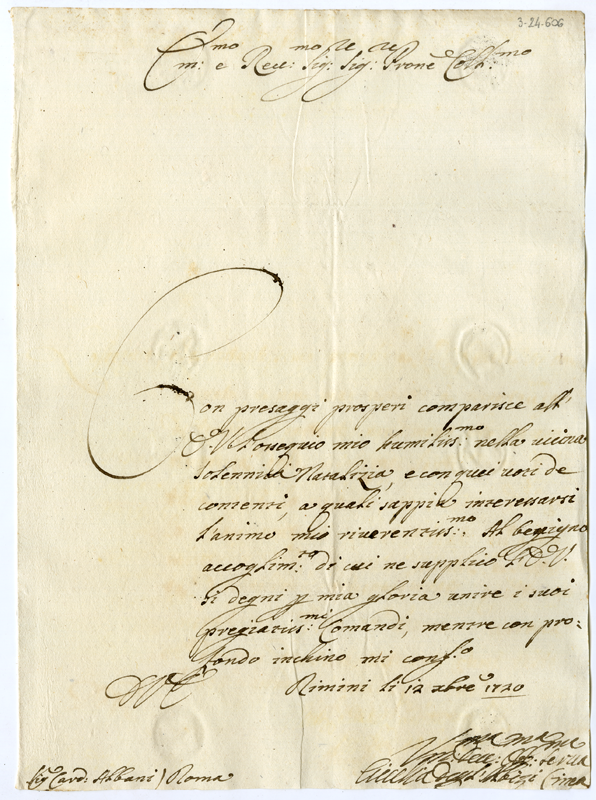 3-24-606
Em:mo e Reu:mo Sig:re Sig:re Prone Coll:mo
Con presaggi prosperi comparisce all'
E. V. l'ossequio mio humiliss:mo nella vicina
solennità Natalizia, e con quei voti de
contenti, a quali sappia interessarsi
l'animo mio riverentiss:mo. Al benigno
accoglim:to di cui ne supplico l'E. V.
si degni p mia gloria unire i suoi
pregiatiss:mi Comandi, mentre con pro=
fondo inchino mi conf:o
D V E
Rimini li 12 xbre 1720
Sig Card: Albani) Roma